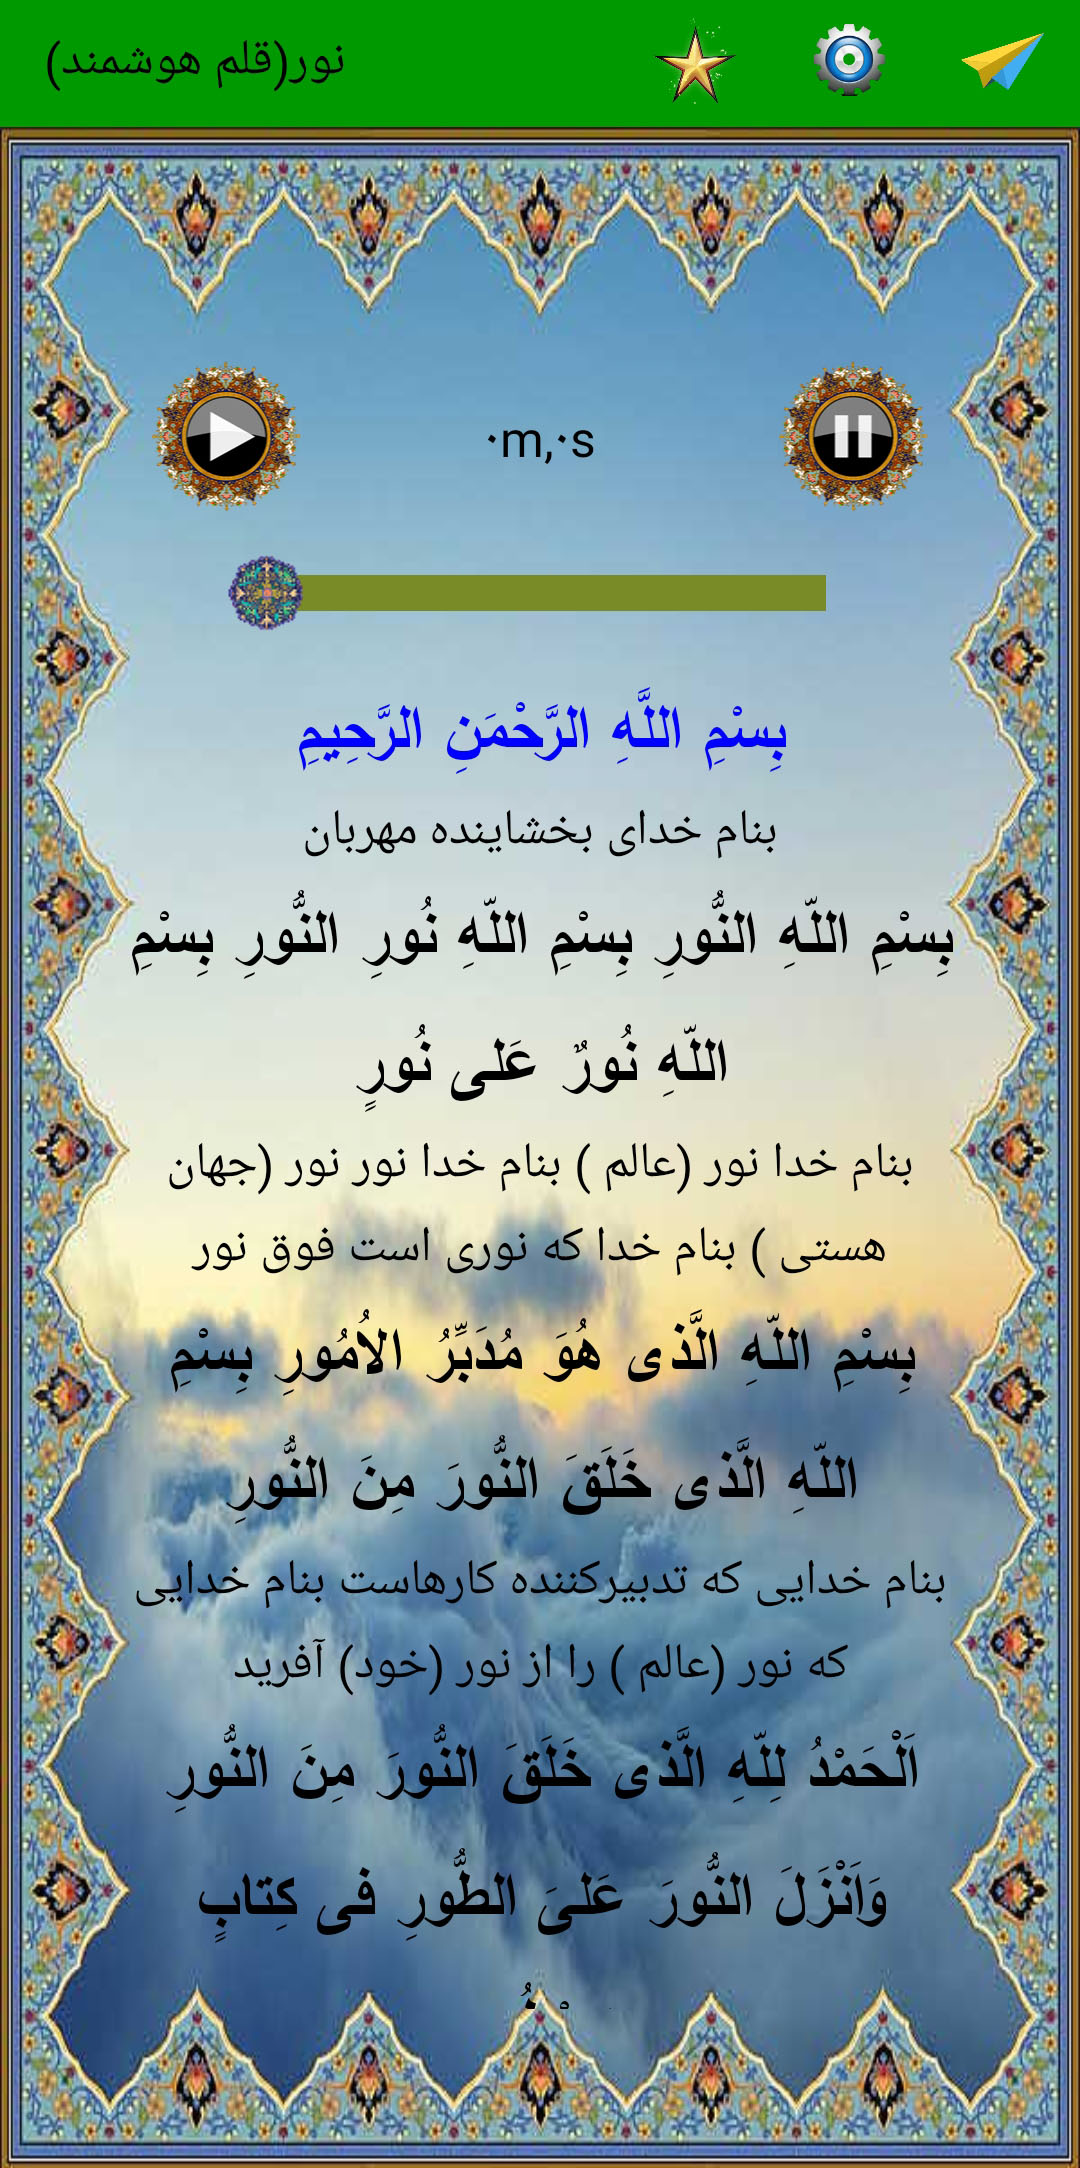 نور(قلم هوشمند)
۰m,۰s
بِسْمِ اللَّهِ الرَّحْمَنِ الرَّحِيمِ
بنام خدای بخشاینده مهربان
بِسْمِ اللّهِ النُّورِ بِسْمِ اللّهِ نُورِ النُّورِ بِسْمِ
اللّهِ نُورٌ عَلى نُورٍ
بنام خدا نور (عالم ) بنام خدا نور نور (جهان
هستی ) بنام خدا که نوری است فوق نور
بِسْمِ اللّهِ الَّذى هُوَ مُدَبِّرُ الاُمُورِ بِسْمِ
اللّهِ الَّذى خَلَقَ النُّورَ مِنَ النُّورِ
بنام خدایی که تدبیرکننده کارهاست بنام خدایی
که نور (عالم ) را از نور (خود) آفرید
اَلْحَمْدُ لِلّهِ الَّذى خَلَقَ النُّورَ مِنَ النُّورِ
وَاَنْزَلَ النُّورَ عَلىَ الطُّورِ فى كِتابٍ